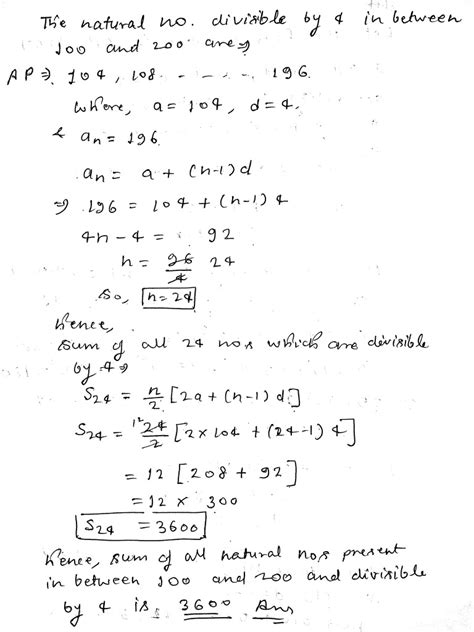 The natural no. divisible by 4 in between
100 and 200 are ⇒
AP ⇒ 104, 108 - - - - - 196.
where, a = 104, d = 4.
& an = 196
an = a + (n-1)d
⇒ 196 = 104 + (n-1) 4
4n - 4 = 92
n = 96/4 24
So, n = 24
Hence,
sum of all 24 nos which are divisible
by 4 ⇒
S24 = n/2 [2a + (n-1) d]
S24 = 12 24/2 [2 x 104 + (24-1) 4]
= 12 [208 + 92]
= 12 x 300
S24 = 3600
Hence, sum of all natural nos present
in between 100 and 200 and divisible
by 4 is 3600 Ans